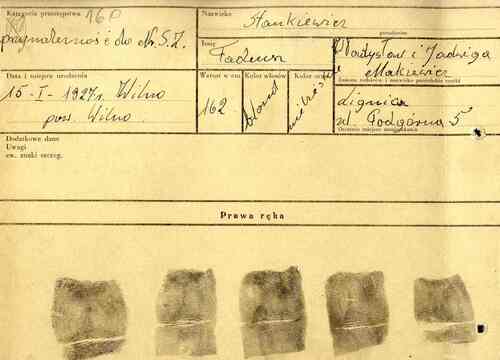 Kategoria przestępstwa 160
Nazwisko Stankiewicz
pseudonim
przynależność do N.S.Z.
Imię Tadeusz
Władysław i Jadwiga
Makiewicz
Imiona rodziców i nazwisko panieńskie matki
Data i miejsce urodzenia
15-I-1927r. Wilno
pow. Wilno
Wzrost w cm
162
Kolor włosów
blond
Kolor oczu
Lignica
ul. Podgórna 5
Ostatnie miejsce zamieszkania
Dodatkowe dane
Uwagi
ew. znaki szczeg.
Prawa ręka